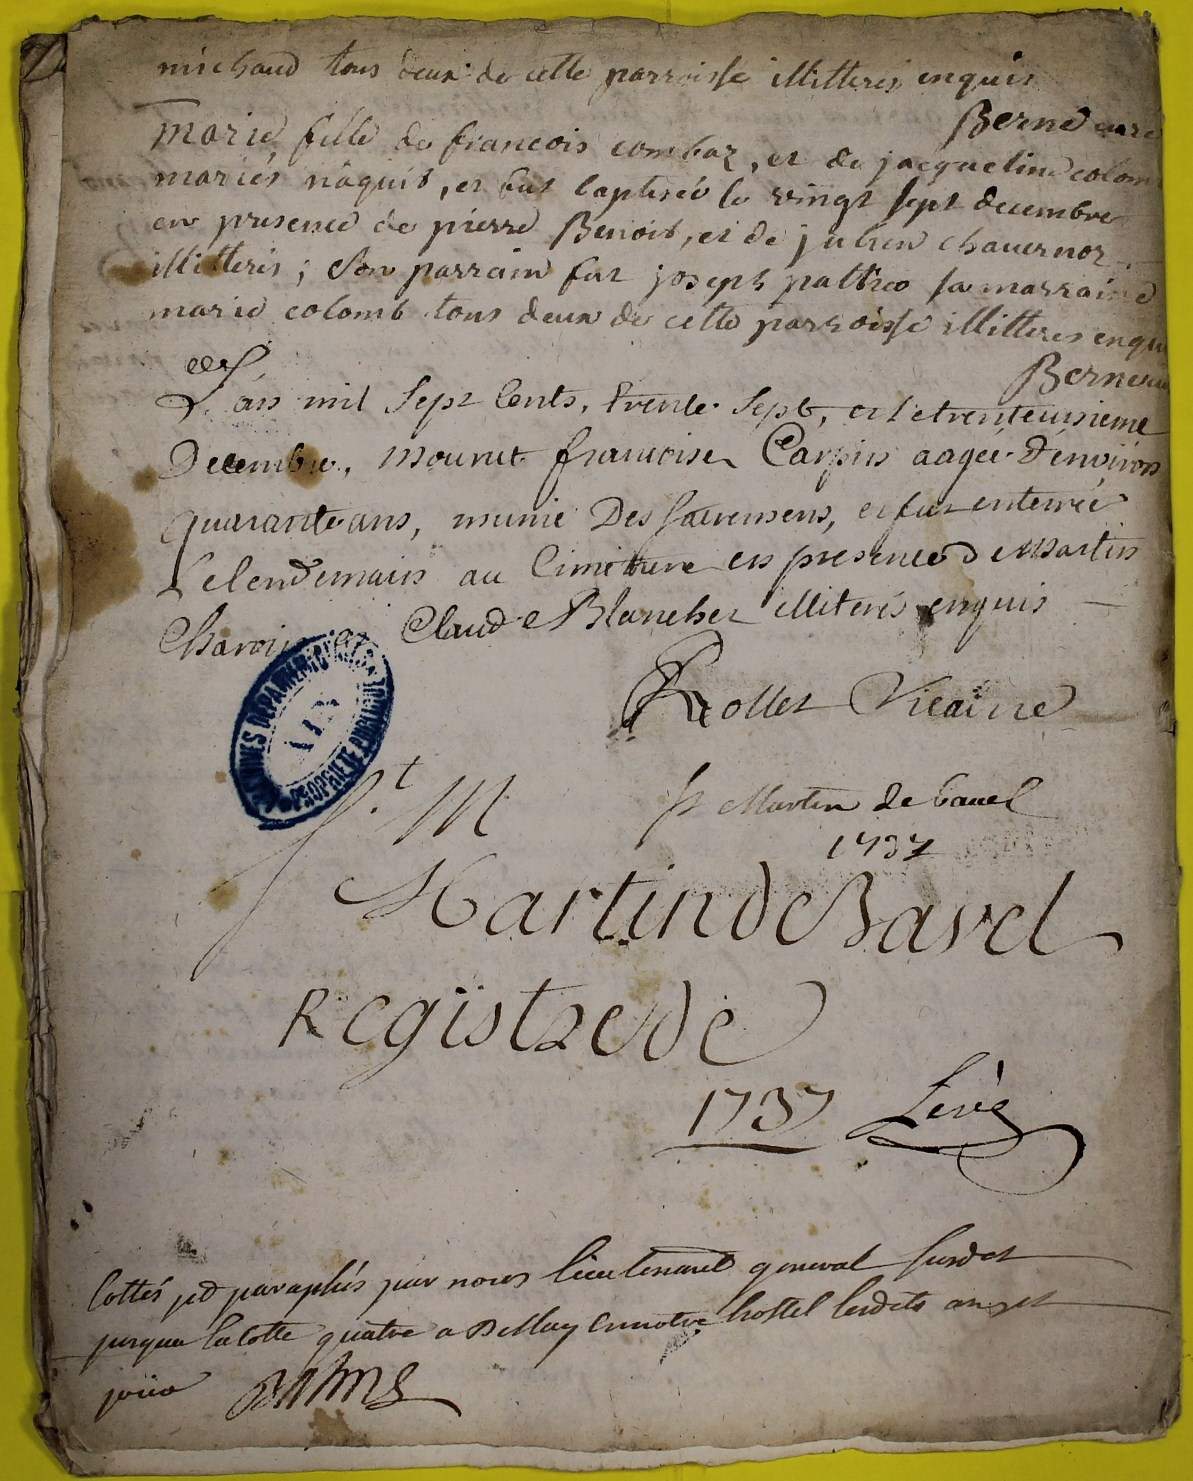 michaud tous deux de cette parroisse illitteres enquis
Berne curé
marie fille de francois combaz, et de jacqueline colom
mariés nâquit, et fut baptisée le vingt sept decembre
en presence de pierre Benoit, et de julien chavernoz
illitteris; son parrain fut joseph patho sa marraine
marie colomb tous deux de cette parroisse illitteres enqu
Berne
L'an mil Sept Cents, trente Sept, et letrenteunieme
Decembre, mourut francoise Carpin aagée d'environ
quarante ans, munie Des sacremens, et fut enterrée
Lelendemain au Cimetiere en presence de Martin
Charoin et Claude Blanchet illiterés enquis
Rollet Vicaire
ARCHIVES DEPARTEMENTALES
AIN
PROPRIETE PUBLIQUE
St. M
St Martin de bavel
1737
Martin de Bavel
Registre de
1737
Cottés et paraphés par nous lieutenant general susdit
jusqua la cotte quatre a Belley en notre hostel lesdits an et
jour